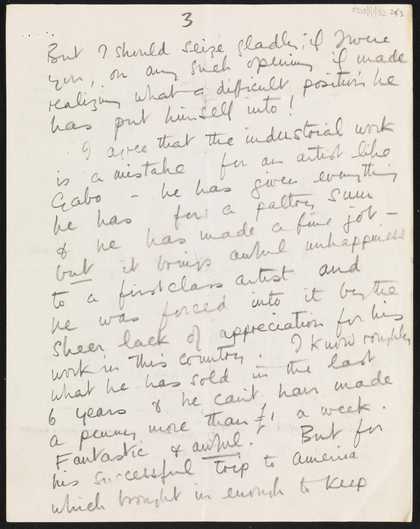 3
But I should seize gladly, if I were
you, on any such opening if made
realizing what a difficult position he
has put himself into!
I agree that the industrial work
is a mistake for an artist like
Gabo – he has given everything
he has for a paltry sum
& he has made a fine job –
but it brings awful unhappiness
to a first class artist and
he was forced into it by the
sheer lack of appreciation for his
work in this country. I know roughly
what he has sold in the last
6 years & he can't have made
a penny more than £1 a week.
Fantastic & awful. But for
his successful trip to America
which brought in enough to keep